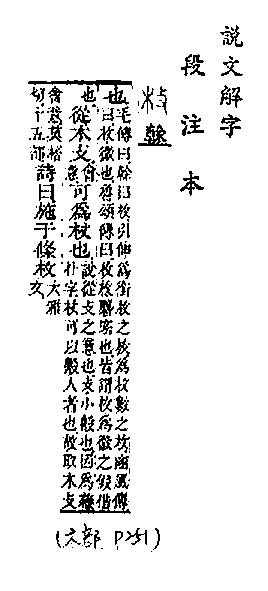 說文解字
段注本
枚 榦
也毛傳曰榦曰枚引伸爲銜枚之枚爲枚數之枚豳風傳
曰枚微也魯頌傳曰枚枚礱密也皆謂枚爲微之假借
也從木攴會意可爲杖也說從攴之意也攴小毄也因爲鞭
扑字杖可以毄人者也故取木攴
會意莫桮
切十五部詩曰施于條枚大雅
文
(木部 P251)